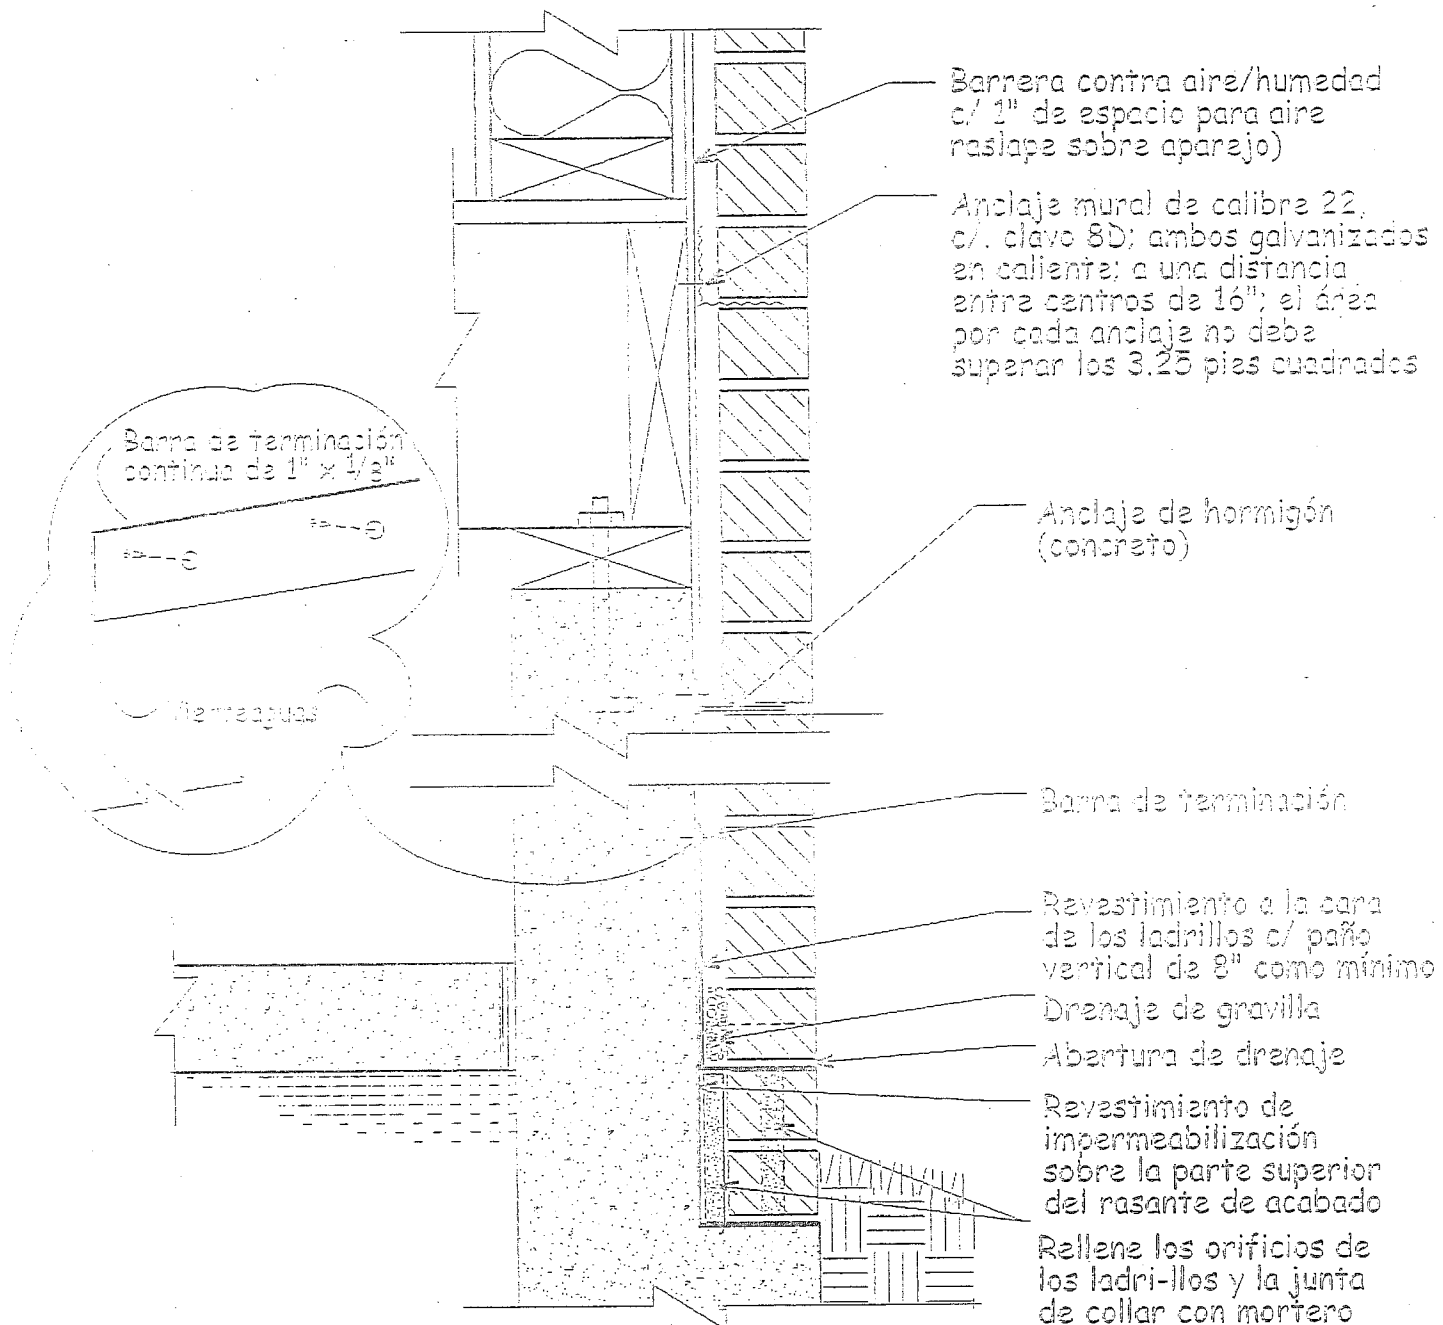 Barrera contra aire/humedad
c/ 1" de espacio para aire
raslape sobre aparejo)
Anclaje mural de calibre 22,
c/. clavo 8D; ambos galvanizados
en caliente; a una distancia
entre centros de 16"; el área
por cada anclaje no debe
superar los 3.25 pies cuadrados
Barra de terminación
continua de 1" x 1/8"
Anclaje de hormigón
(concreto)
Vierteaguas
Barra de terminación
Revestimiento a la cara
de los ladrillos c/ paño
vertical de 8" como mínimo
Drenaje de gravilla
Abertura de drenaje
Revestimiento de
impermeabilización
sobre la parte superior
del rasante de acabado
Rellene los orificios de
los ladri-llos y la junta
de collar con mortero